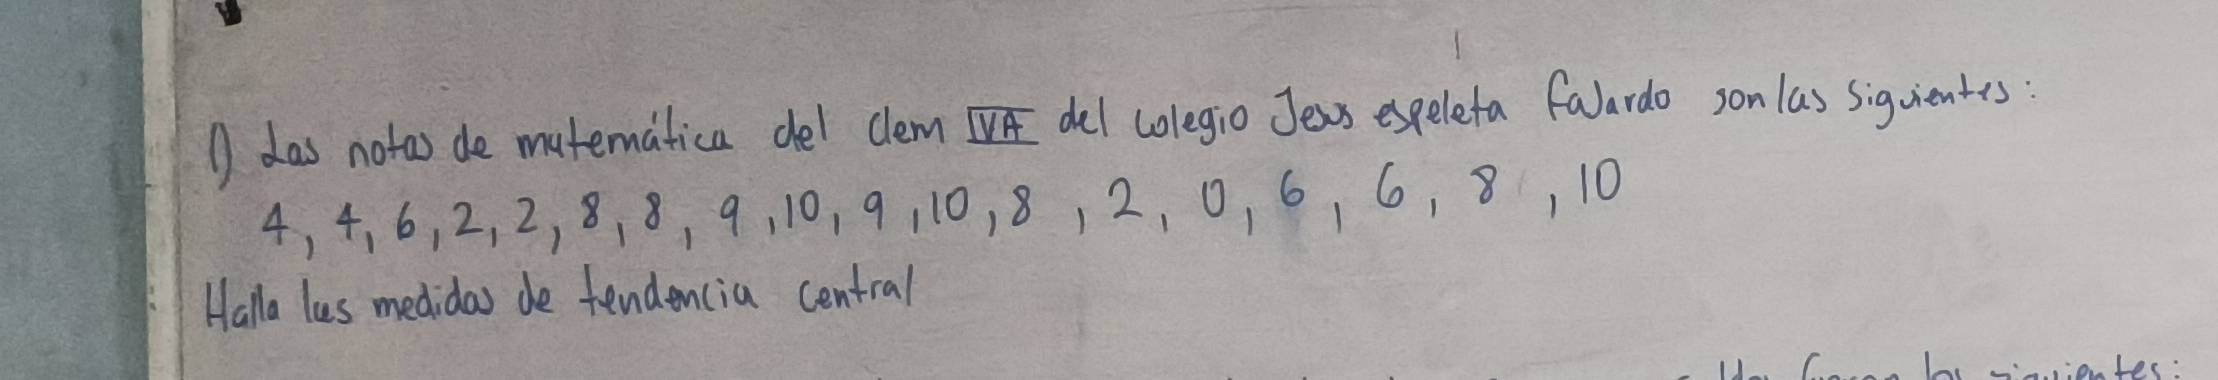 1) Las notas de matemática del clem IVA del colegio Jesus espeleta fajardo son las siguientes:
4, 4, 6, 2, 2, 8, 8, 9, 10, 9, 10, 8, 2, 0, 6, 6, 8, 10
Halla las medidas de tendencia central
los siguientes: